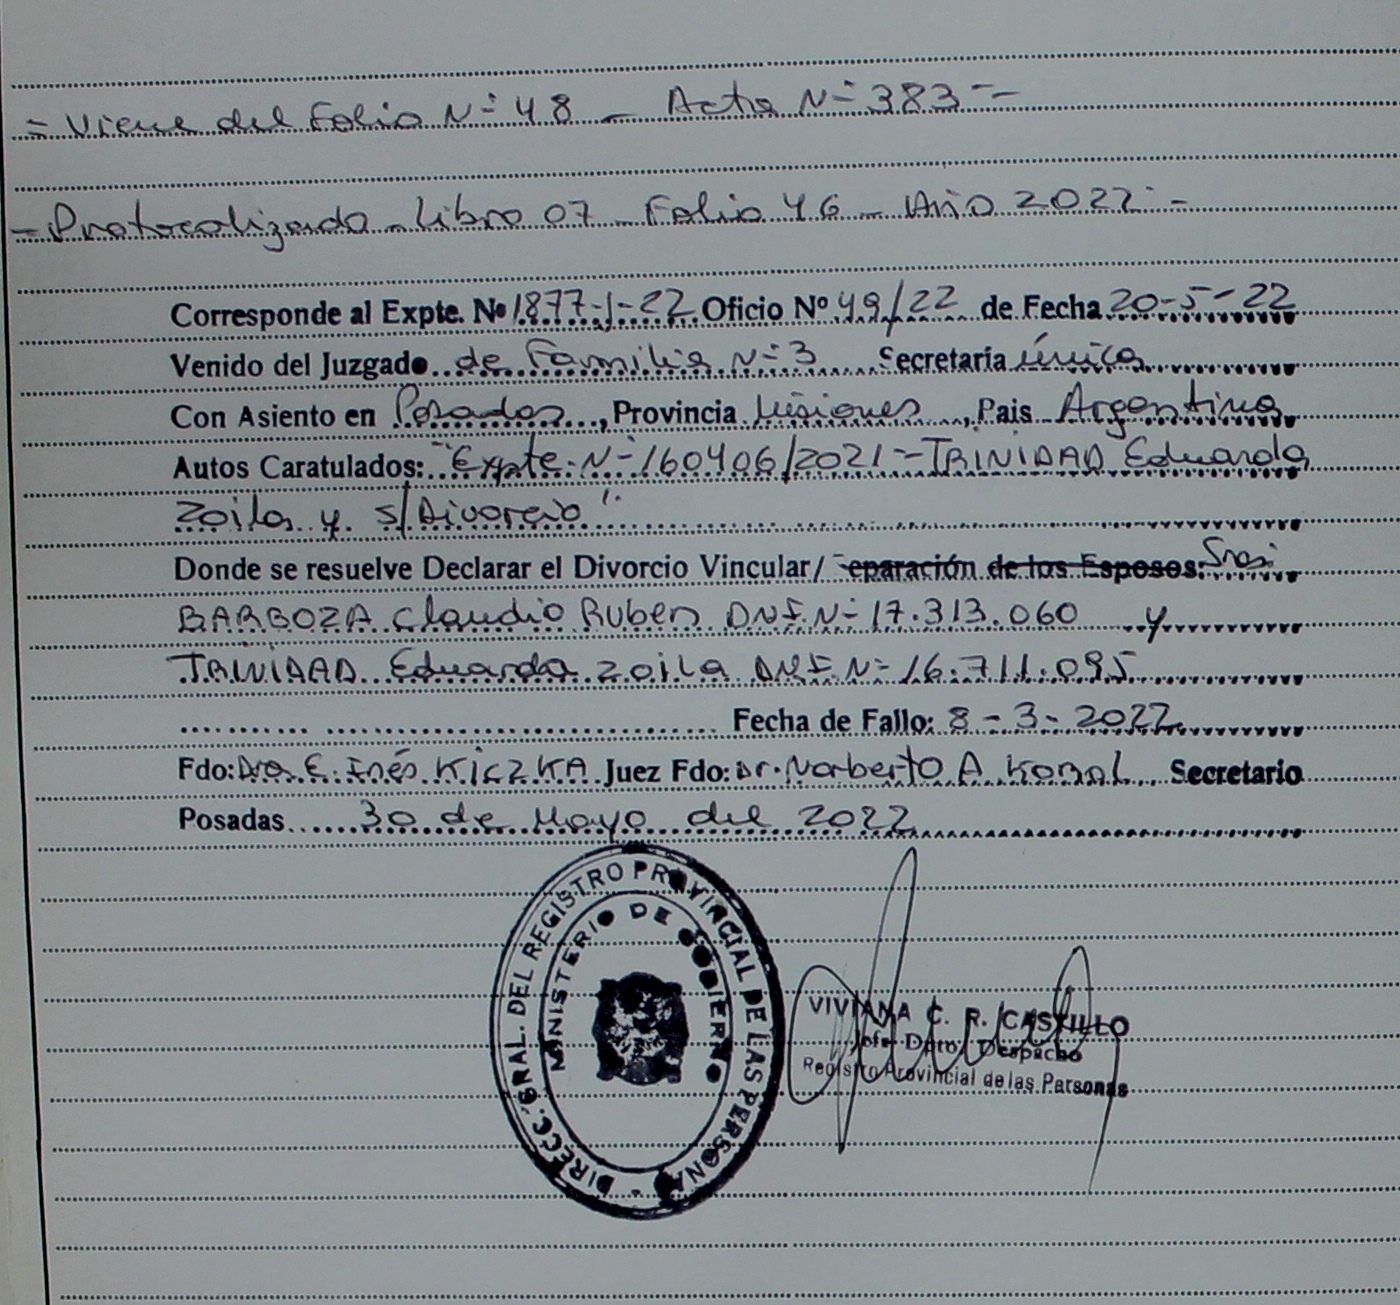 = Viene del Folio Nº 48 _ Acta Nº 383 --
- Protocolizado - Libro 07 - Folio 46 - Año 2022 -
Corresponde al Expte. Nº 1877-J-22 Oficio Nº 49/22 de Fecha 20-5-22
Venido del Juzgado de Familia Nº 3 Secretaria única
Con Asiento en Posadas, Provincia Misiones, Pais Argentina
Autos Caratulados: "Expte. Nº 160406/2021 - TRINIDAD Eduarda
Zoila y s/Divorcio".
Donde se resuelve Declarar el Divorcio Vincular/ eparación de los Esposos: Sres:
BARBOZA Claudio Ruben DNI Nº 17.313.060 y
TRINIDAD Eduarda Zoila DNI Nº 16.711.095
Fecha de Fallo: 8-3-2022
Fdo: Dra. E. Inés KICZKA Juez Fdo: Dr. Norberto A. Korol Secretario
Posadas 30 de Mayo del 2022
DIRECC. GRAL. DEL REGISTRO PROVINCIAL DE LAS PERSONAS
MINISTERIO DE GOBIERNO
VIVIANA C. R. CASTILLO
Jefe Dpto. Despacho
Registro Provincial de las Personas